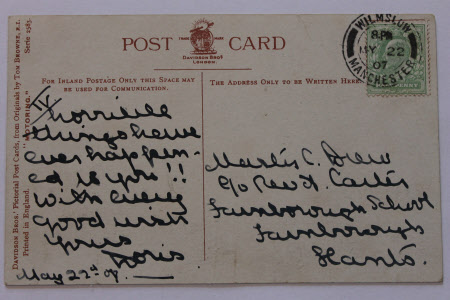 Davidson Bros.' Pictorial Post Cards, from Originals by Tom Browne, R.I.
Printed in England. "MOTORING." Serie 2585.
POST CARD
TRADE MARK
DAVIDSON BROS
LONDON.
FOR INLAND POSTAGE ONLY THIS SPACE MAY
BE USED FOR COMMUNICATION.
THE ADDRESS ONLY TO BE WRITTEN HERE.
WILMSLOW
8.PM
MY 22
07
MANCHESTER
horrible
things have
ever happen-
ed to you!!
with every
good wish
Yours
Doris
May 22nd 07.
C. Drew
c/o Revd Carter
Farnborough School
Farnborough
Hants.